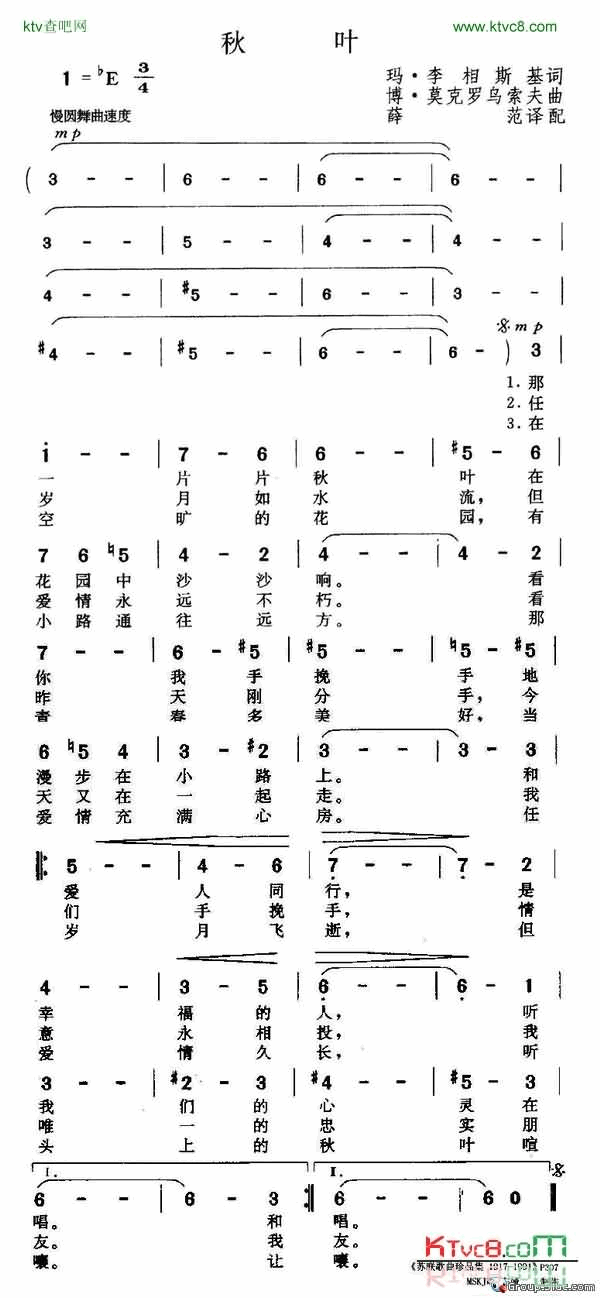 ktv查吧网 www.ktvc8.com
秋 叶
1 = ♭E 3/4
玛·李相斯基词
博·莫克罗乌索夫曲
慢圆舞曲速度
薛 范译配
mp
( 3 - - | 6 - - | 6 - - | 6 - - |
3 - - | 5 - - | 4 - - | 4 - - |
4 - - | #5 - - | 6 - - | 3 - - |
mp
#4 - - | #5 - - | 6 - - | 6 - ) 3 |
1.那
2.任
3.在
1 - - | 7 - 6 | 6 - - | #5 - 6 |
一 片 片 秋 叶 在
岁 月 如 水 流, 但
空 旷 的 花 园, 有
7 6 ♮5 | 4 - 2 | 4 - - | 4 - 2 |
花 园 中 沙 沙 响。 看
爱 情 永 远 不 朽。 看
小 路 通 往 远 方。 那
7 - - | 6 - #5 | #5 - - | ♮5 - #5 |
你 我 手 挽 手 地
昨 天 刚 分 手, 今
青 春 多 美 好, 当
6 ♮5 4 | 3 - #2 | 3 - - | 3 - 3 |
漫 步 在 小 路 上。 和
天 又 在 一 起 走。 我
爱 情 充 满 心 房。 任
5 - - | 4 - 6 | 7 - - | 7 - 2 |
爱 人 同 行, 是
们 手 挽 手, 情
岁 月 飞 逝, 但
4 - - | 3 - 5 | 6 - - | 6 - 1 |
幸 福 的 人, 听
意 永 相 投, 我
爱 情 久 长, 听
3 - - | #2 - 3 | #4 - - | #5 - 3 |
我 们 的 心 灵 在
唯 一 的 忠 实 朋
头 上 的 秋 叶 喧
I. II.
6 - - | 6 - 3 :| 6 - - | 6 0 ‖
唱。 和 唱。
友。 我 友。
嚷。 让 嚷。
KTvc8.com
《苏联歌曲珍品集 1917-1991》P397